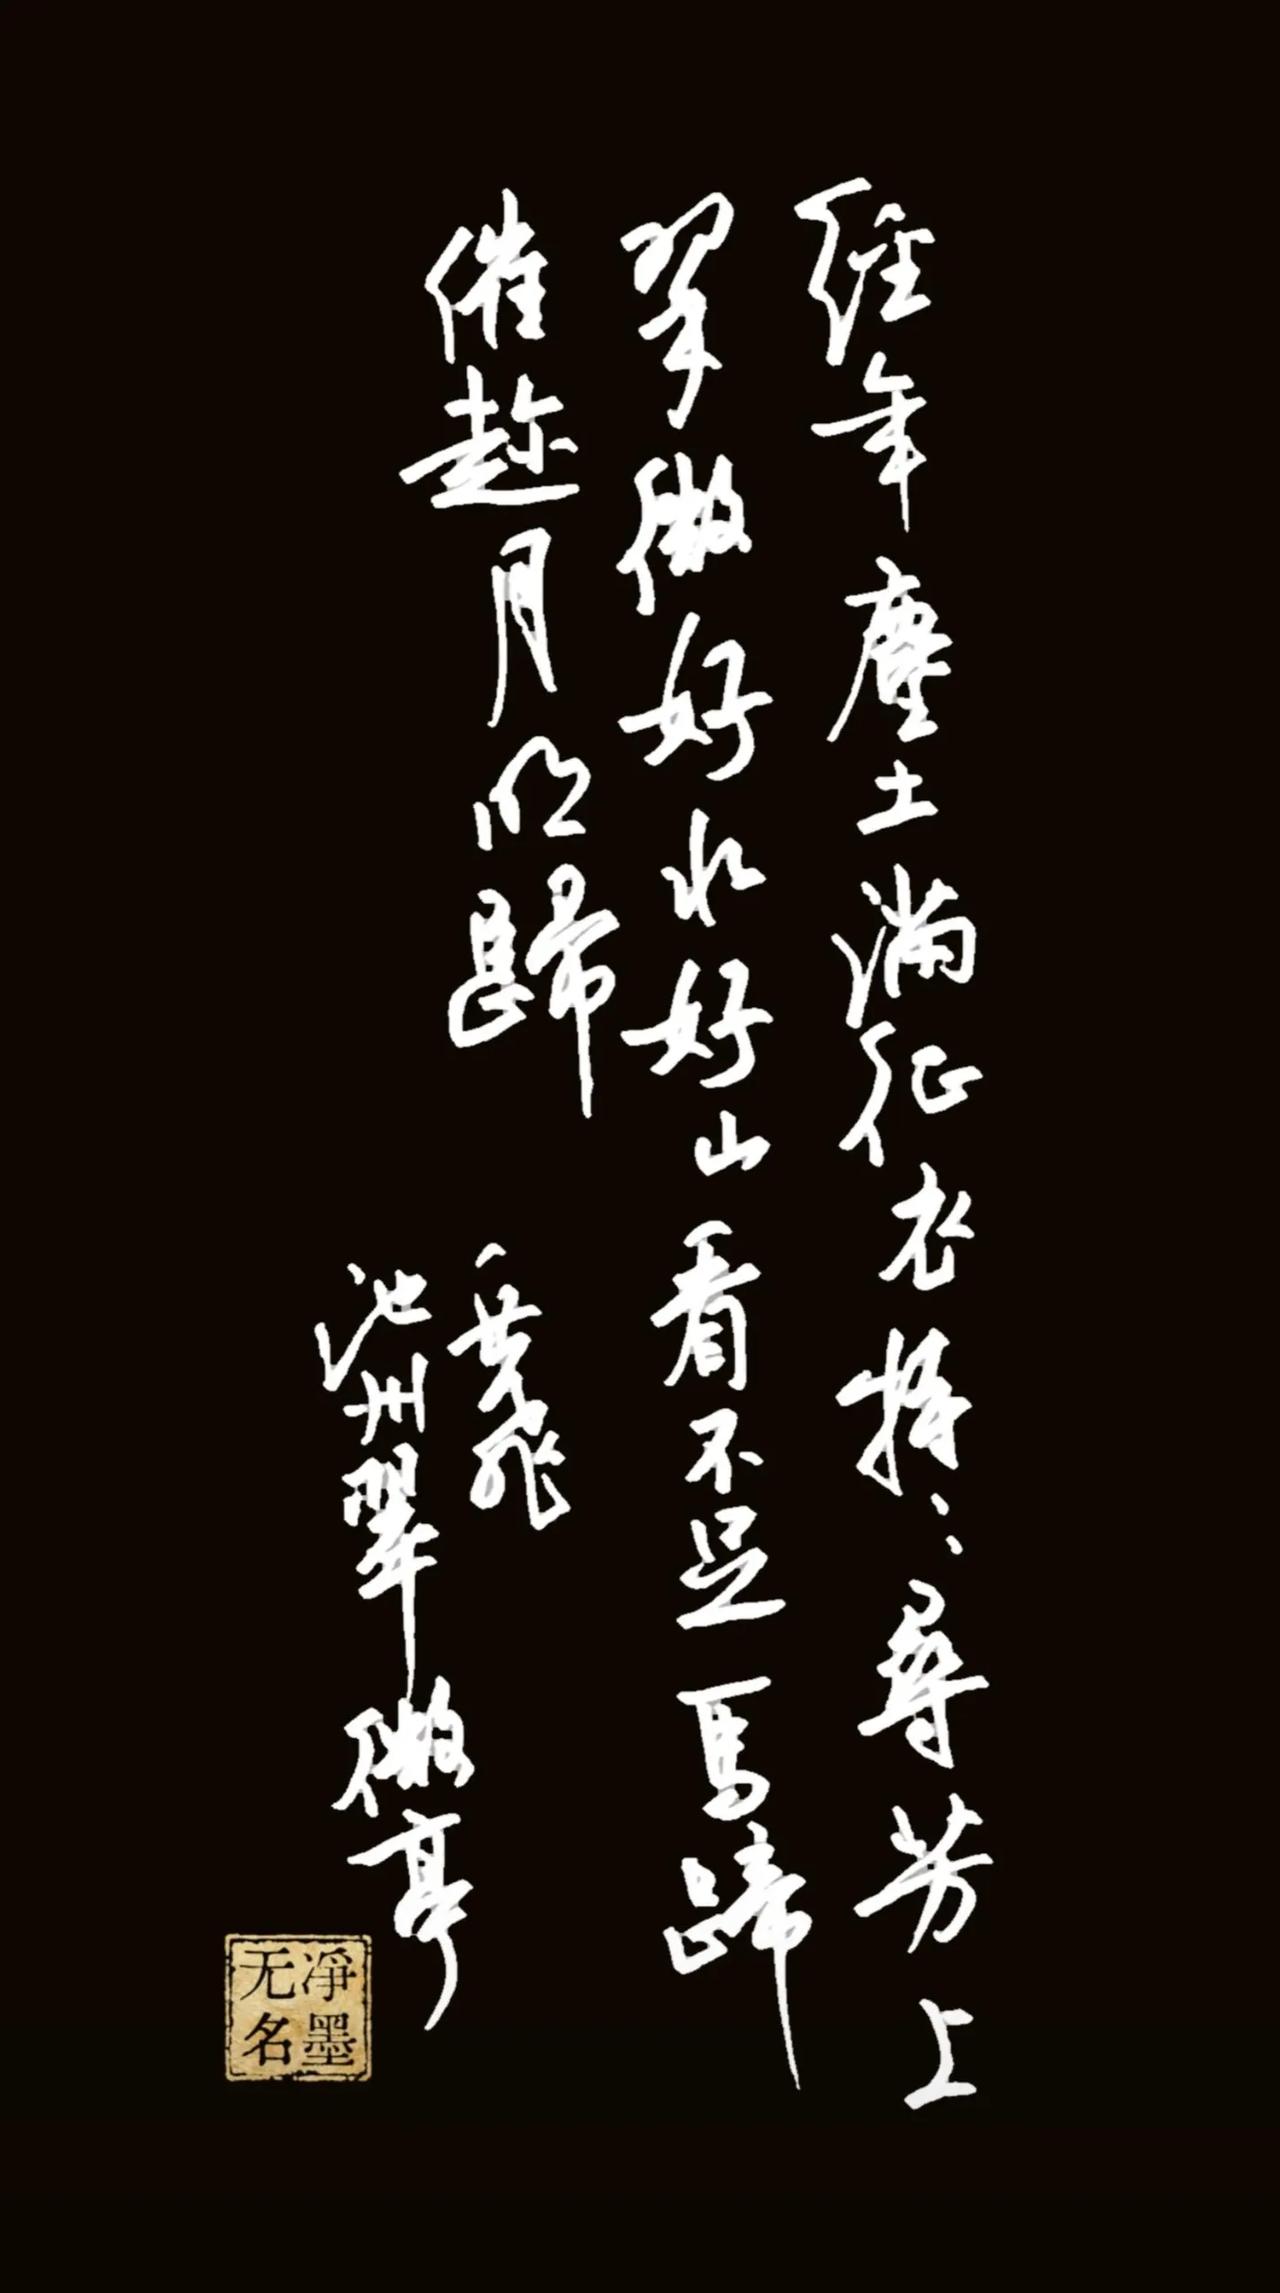 經年塵土滿征衣特〻尋芳上
翠微好水好山看不足馬蹄
催趂月明歸
岳飛
池州翠微亭
凈墨
无名